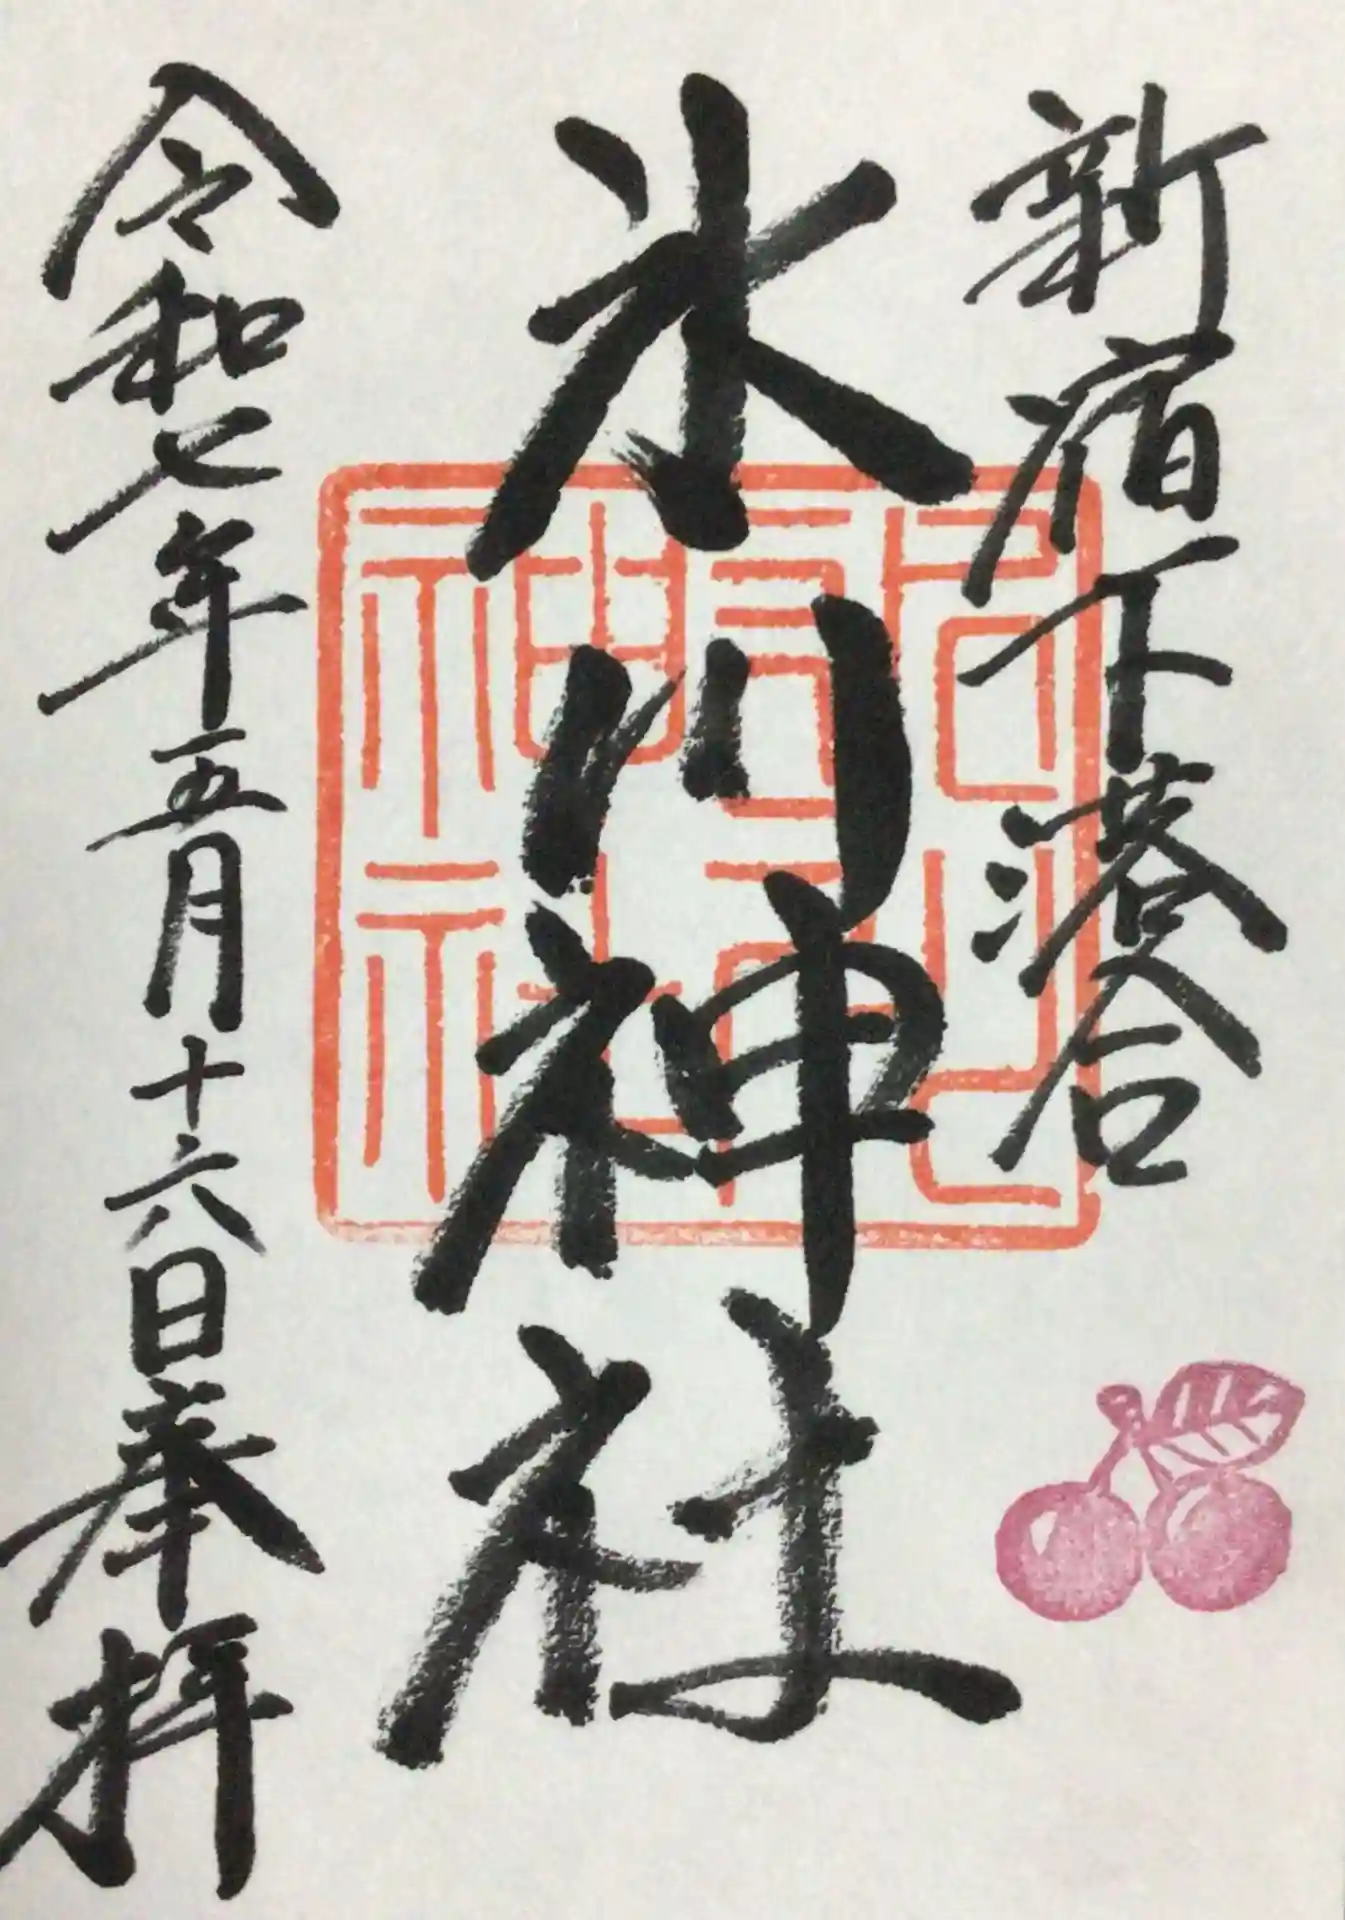 新宿下落合
氷川神社
令和七年五月十六日奉拝